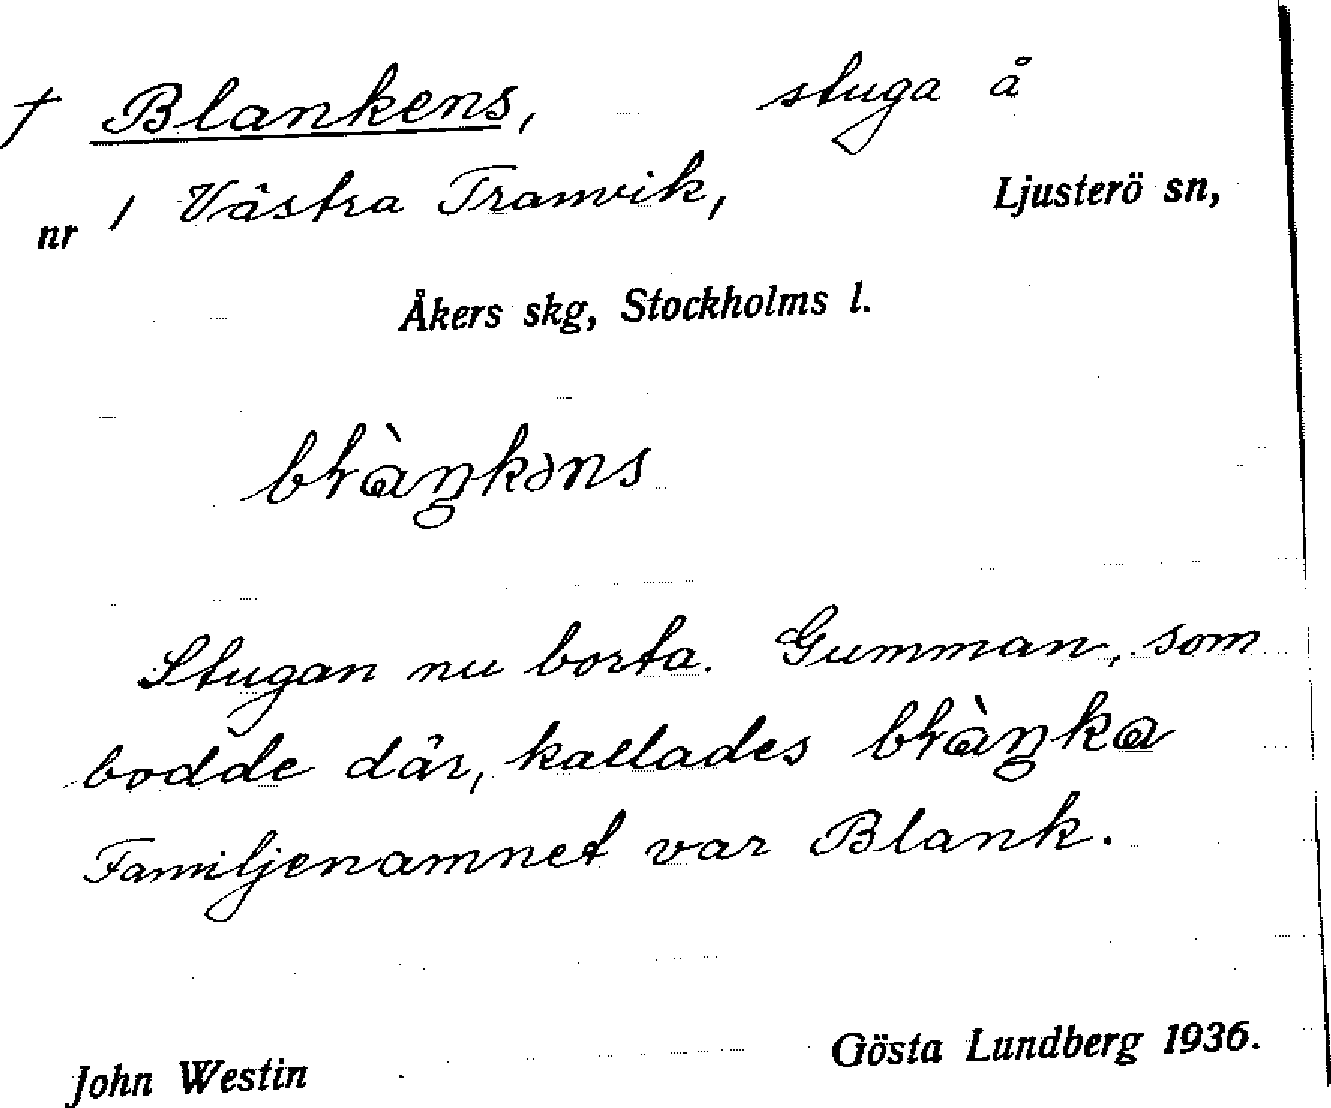 † Blankens, stuga å
nr 1 Västra Tranvik, Ljusterö sn,
Åkers skg, Stockholms l.
bɫàŋkəns
Stugan nu borta. Gumman, som
bodde där, kallades bɫàŋka
Familjenamnet var Blank.
John Westin Gösta Lundberg 1936.